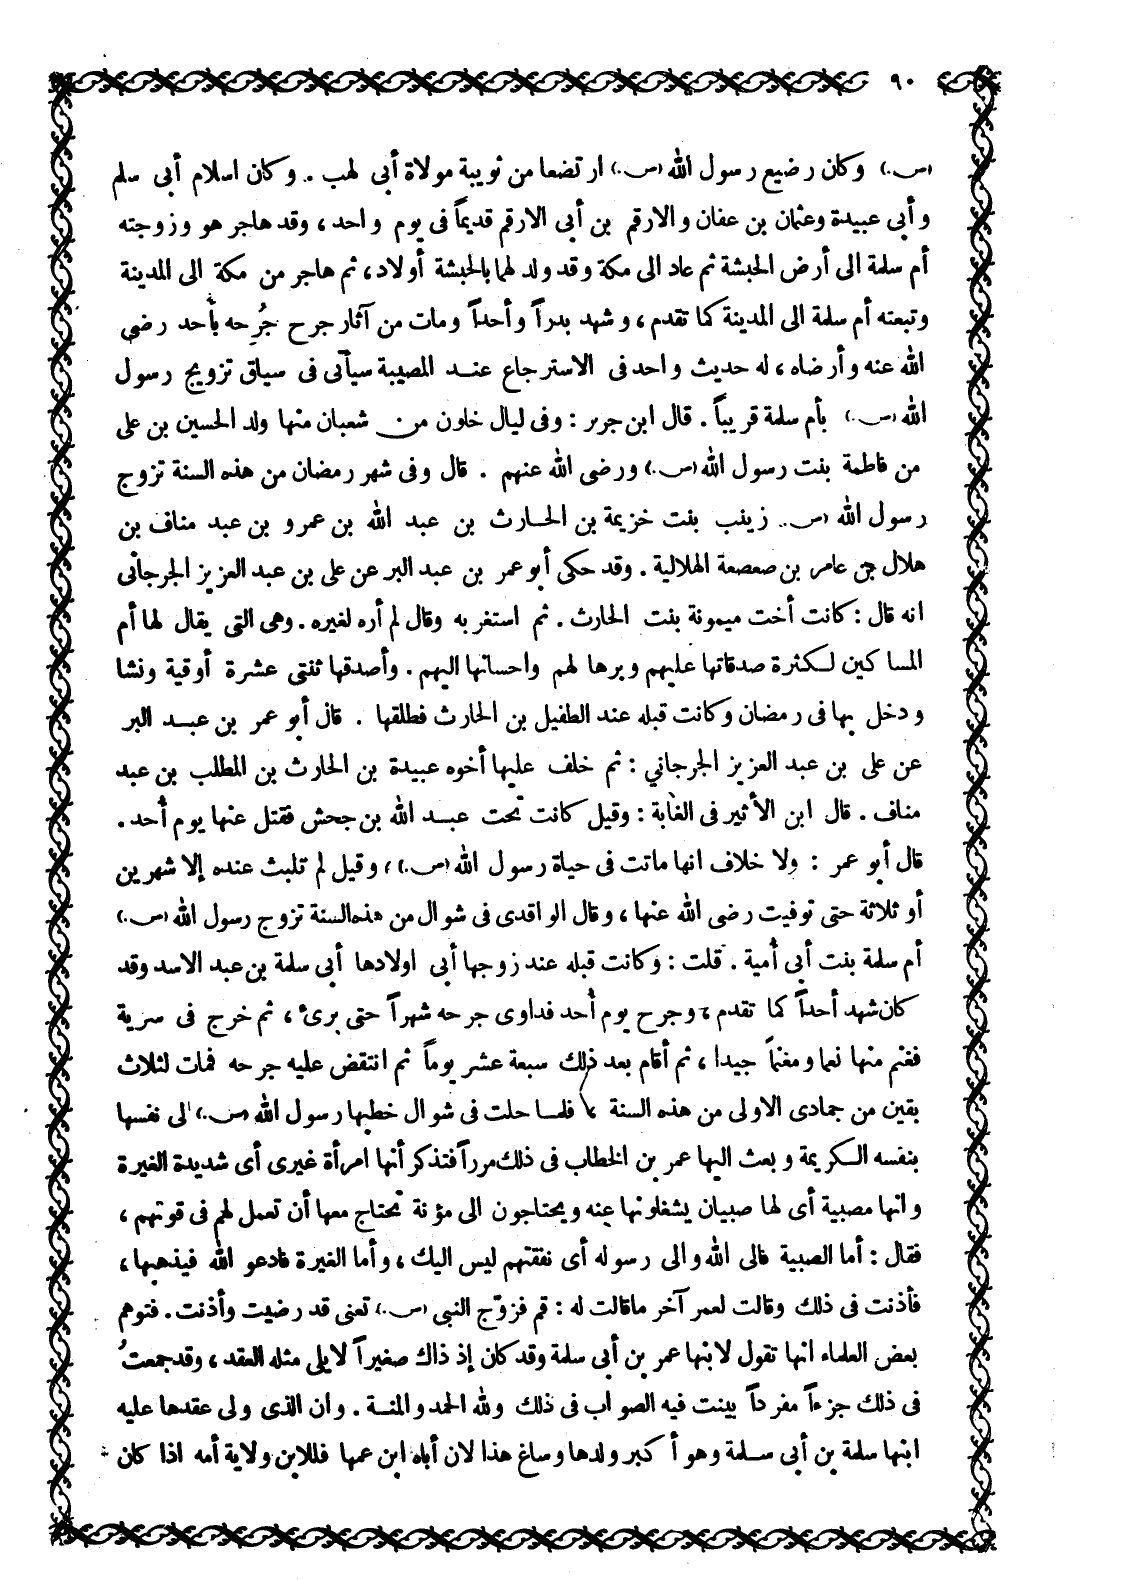 ٩٠
(ص.) وكان رضيع رسول الله (ص.) ارتضعا من ثويبة مولاة أبى لهب . وكان اسلام أبى سلم
وأبى عبيدة وعثمان بن عفان والارقم بن أبى الارقم قديماً فى يوم واحد ، وقد هاجر هو وزوجته
أم سلمة الى أرض الحبشة ثم عاد الى مكة وقد ولد لهما بالحبشة أولاد ، ثم هاجر من مكة الى المدينة
وتبعته أم سلمة الى المدينة كما تقدم ، وشهد بدراً وأحداً ومات من آثار جرح جُرحه بأحد رضى
الله عنه وأرضاه ، له حديث واحد فى الاسترجاع عند المصيبة سيأتى فى سياق تزويج رسول
الله (ص.) بأم سلمة قريباً . قال ابن جرير : وفى ليال خلون من شعبان منها ولد الحسين بن على
من فاطمة بنت رسول الله (ص.) ورضى الله عنهم . قال وفى شهر رمضان من هذه السنة تزوج
رسول الله (ص.. زينب بنت خزيمة بن الحارث بن عبد الله بن عمرو بن عبد مناف بن
هلال بن عامر بن صعصعة الهلالية . وقد حكى أبو عمر بن عبد البر عن على بن عبد العزيز الجرجانى
انه قال : كانت أخت ميمونة بنت الحارث . ثم استغربه وقال لم أره لغيره . وهى التى يقال لها أم
المساكين لكثرة صدقاتها عليهم وبرها لهم واحسانها اليهم . وأصدقها ثنتى عشرة أوقية ونشا
ودخل بها فى رمضان وكانت قبله عند الطفيل بن الحارث فطلقها . قال أبو عمر بن عبد البر
عن على بن عبد العزيز الجرجاني : ثم خلف عليها أخوه عبيدة بن الحارث بن المطلب بن عبد
مناف . قال ابن الأثير فى الغابة : وقيل كانت تحت عبد الله بن جحش فقتل عنها يوم أحد .
قال أبو عمر : ولا خلاف انها ماتت فى حياة رسول الله (ص.) ، وقيل لم تلبث عنده إلا شهرين
أو ثلاثة حتى توفيت رضى الله عنها ، وقال الواقدى فى شوال من هذه السنة تزوج رسول الله (ص.)
أم سلمة بنت أبى أمية . قلت : وكانت قبله عند زوجها أبى اولادها أبى سلمة بن عبد الاسد وقد
كان شهد أحداً كما تقدم ، وجرح يوم أحد فداوى جرحه شهراً حتى برئ ، ثم خرج فى سرية
فغنم منها نعما ومغنماً جيدا ، ثم أقام بعد ذلك سبعة عشر يوماً ثم انتقض عليه جرحه فمات لثلاث
بقين من جمادى الاولى من هذه السنة ، فلما حلت فى شوال خطبها رسول الله (ص.) الى نفسها
بنفسه الكريمة وبعث اليها عمر بن الخطاب فى ذلك مرراً فتذكر أنها امرأة غيرى أى شديدة الغيرة
وانها مصبية أى لها صبيان يشغلونها عنه ويحتاجون الى مؤنة تحتاج معها أن تعمل لهم فى قوتهم ،
فقال : أما الصبية فالى الله والى رسوله أى نفقتهم ليس اليك ، وأما الغيرة فادعو الله فيذهبها ،
فأذنت فى ذلك وقالت لعمر آخر ماقالت له : قم فزوّج النبى (ص.) تعنى قد رضيت وأذنت . فتوهم
بعض العلماء انها تقول لابنها عمر بن أبى سلمة وقد كان إذ ذاك صغيراً لا يلى مثله العقد ، وقد جمعتُ
فى ذلك جزءاً مفرداً بينت فيه الصواب فى ذلك ولله الحمد والمنة . وان الذى ولى عقدها عليه
ابنها سلمة بن أبى سلمة وهو أكبر ولدها وساغ هذا لان أباه ابن عمها فللابن ولاية أمه اذا كان